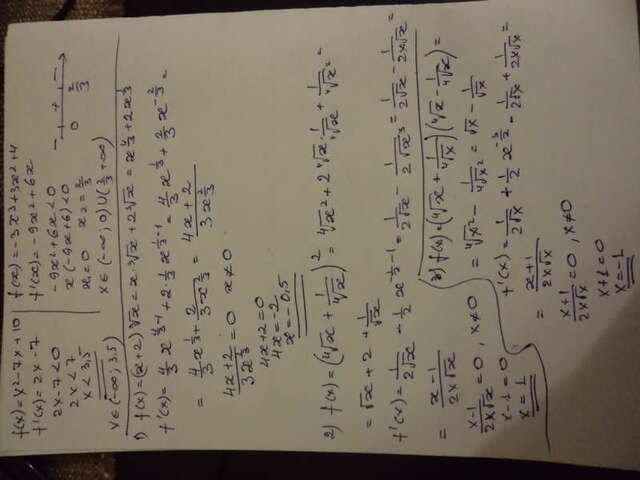 f(x) = x² - 7x + 10
f'(x) = 2x - 7
2x - 7 < 0
2x < 7
x < 3,5
x ∈ (-∞; 3,5)
f(x) = -3x³ + 3x² + 4
f'(x) = -9x² + 6x
-9x² + 6x < 0
x(-9x + 6) < 0
x₁ = 0 x₂ = 2/3
x ∈ (-∞; 0) ∪ (2/3; +∞)
- + -
0 2/3
1) f(x) = (x+2)∛x = x·∛x + 2∛x = x^(4/3) + 2x^(1/3)
f'(x) = 4/3 x^(4/3 - 1) + 2·1/3 x^(1/3 - 1) = 4/3 x^(1/3) + 2/3 x^(-2/3) =
= 4/3 x^(1/3) + 2/(3x^(2/3)) = (4x+2)/(3x^(2/3))
(4x+2)/(3x^(2/3)) = 0 x ≠ 0
4x + 2 = 0
4x = -2
x = -0,5
2) f(x) = (∜x + 1/∜x)² = ∜x² + 2∜x · 1/∜x + 1/∜x² =
= √x + 2 + 1/√x
f'(x) = 1/(2√x) - 1/2 x^(-1/2 - 1) = 1/(2√x) - 1/(2√x³) = 1/(2√x) - 1/(2x√x) =
= (x-1)/(2x√x)
(x-1)/(2x√x) = 0, x ≠ 0
x - 1 = 0
x = 1
3) f(x) = (∜x + 1/∜x)(∜x - 1/∜x) =
= ∜x² - 1/∜x² = √x - 1/√x
f'(x) = 1/(2√x) + 1/2 x^(-3/2) = 1/(2√x) + 1/(2x√x) =
= (x+1)/(2x√x)
(x+1)/(2x√x) = 0, x ≠ 0
x + 1 = 0
x = -1